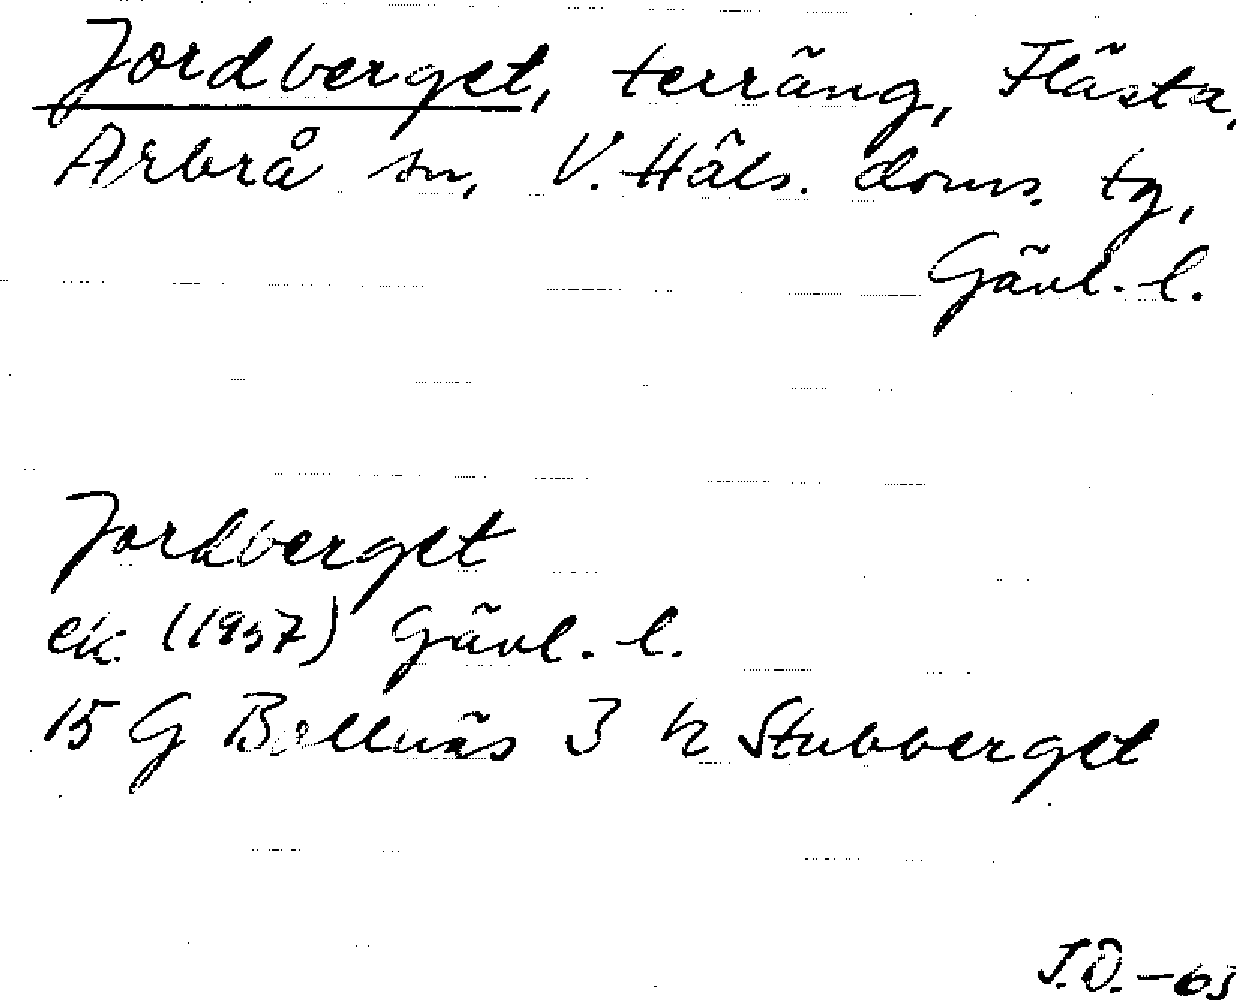 Jordberget, terräng, Flästa,
Arbrå sn, V. Häls. doms. tg,
Gävl. l.
Jordberget
ek. (1937) Gävl. l.
15 G Bollnäs 3 h Stubberget
J.Ö. -63